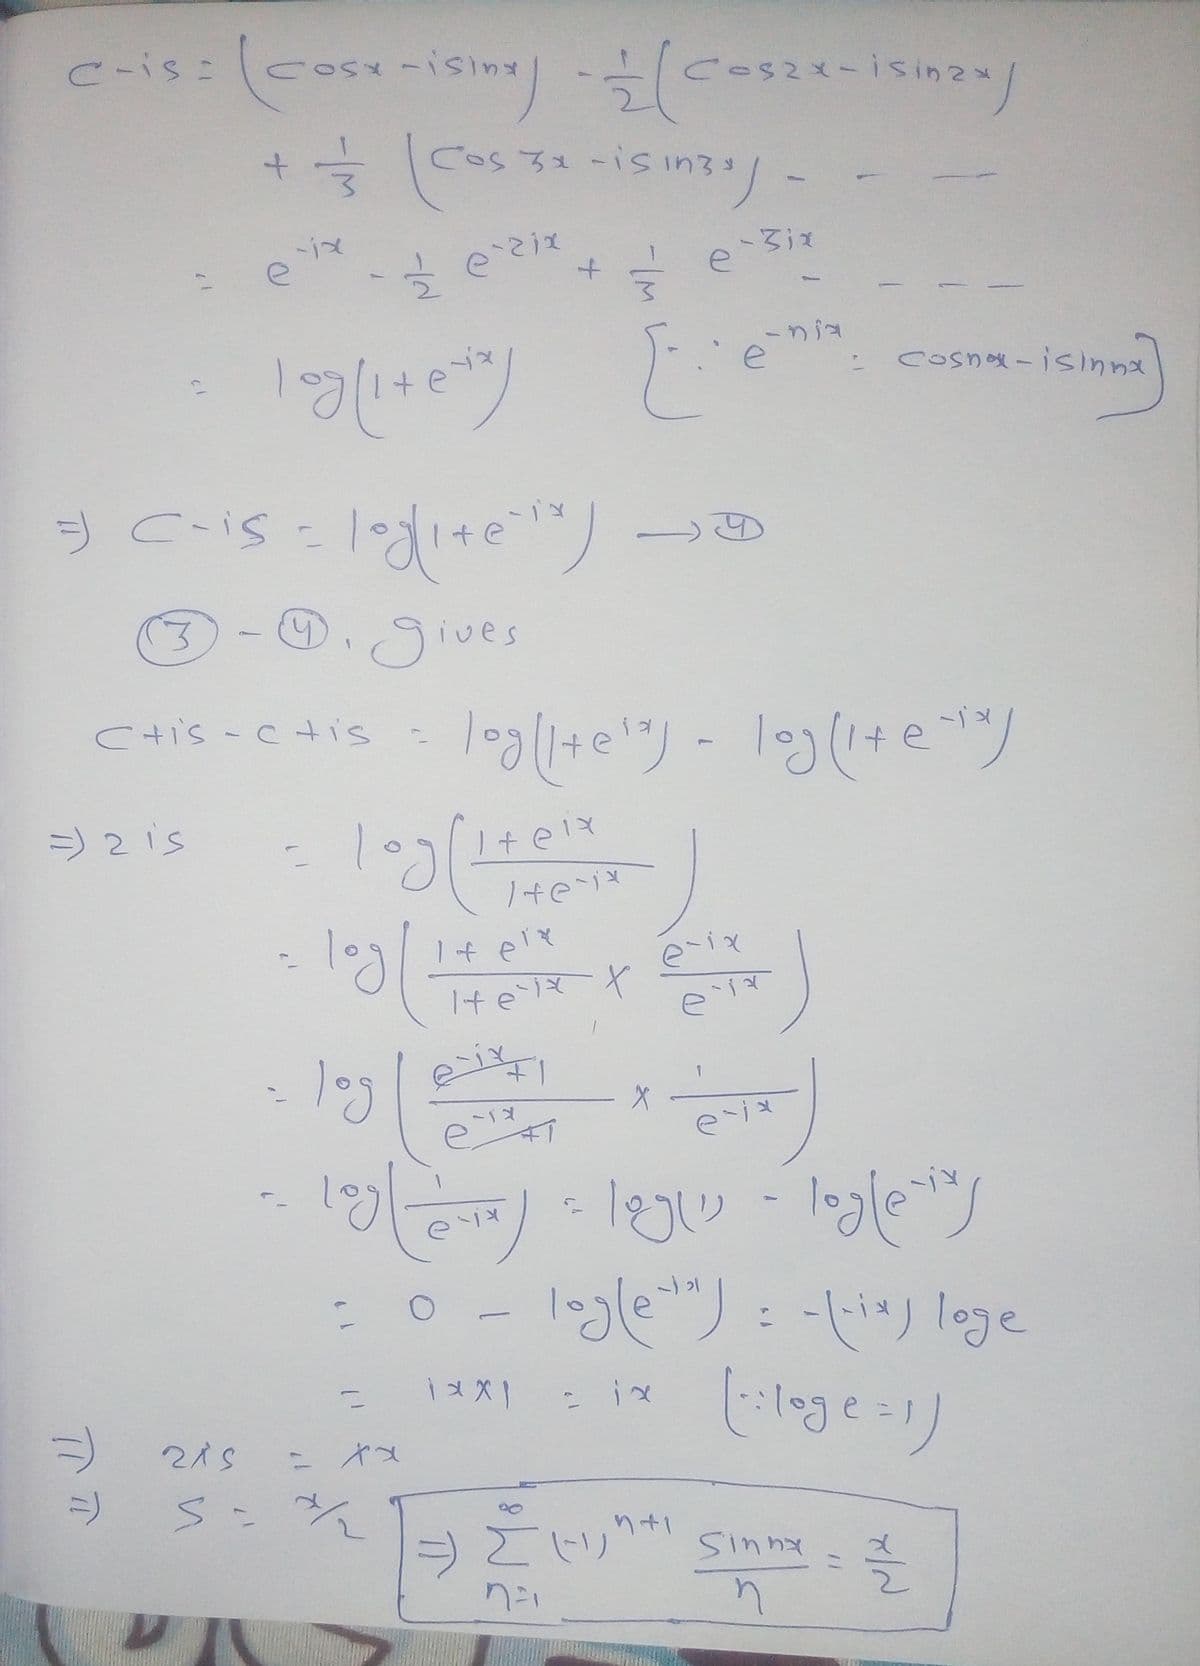 c-is = (cosx - isinx) - 1/2 (cos2x - isin2x)
+ 1/3 (cos 3x - isin3x) - - -
= e^-ix - 1/2 e^-2ix + 1/3 e^-3ix - - - -
= log(1+e^-ix) [∵ e^-nix = cosnx - isinnx]
⇒ c-is = log(1+e^-ix) → ④
③ - ④, gives
c+is - c+is = log(1+e^ix) - log(1+e^-ix)
⇒ 2is = log(1+e^ix / 1+e^-ix)
= log(1+e^ix / 1+e^-ix × e^-ix / e^-ix)
= log(e^-ix+1 / e^-ix+1 × 1 / e^-ix)
= log(1 / e^-ix) = log(1) - log(e^-ix)
= 0 - log(e^-ix) = -(-ix) loge
= ix×1 = ix (∵ loge=1)
⇒ 2is = ix
⇒ s = x/2
⇒ ∑_{n=1}^∞ (-1)^n+1 sinnx / n = x/2